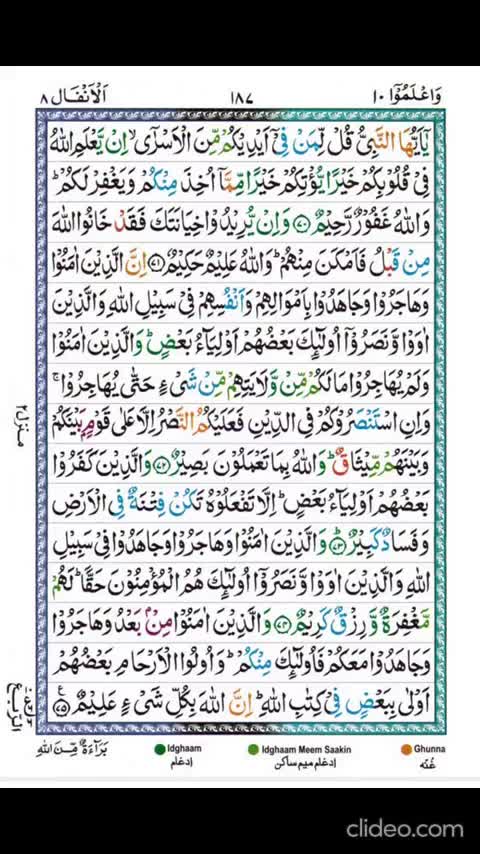 وَاعْلَمُوْٓا ۱۰ ۱۸۷ اَلْاَنْفَال ۸
يٰٓاَيُّهَا النَّبِيُّ قُلْ لِّمَنْ فِيْٓ اَيْدِيْكُمْ مِّنَ الْاَسْرٰٓى ۙ اِنْ يَّعْلَمِ اللّٰهُ
فِيْ قُلُوْبِكُمْ خَيْرًا يُّؤْتِكُمْ خَيْرًا مِّمَّآ اُخِذَ مِنْكُمْ وَيَغْفِرْ لَكُمْ ؕ
وَاللّٰهُ غَفُوْرٌ رَّحِيْمٌ ﴿۷۰﴾ وَاِنْ يُّرِيْدُوْا خِيَانَتَكَ فَقَدْ خَانُوا اللّٰهَ
مِنْ قَبْلُ فَاَمْكَنَ مِنْهُمْ ؕ وَاللّٰهُ عَلِيْمٌ حَكِيْمٌ ﴿۷۱﴾ اِنَّ الَّذِيْنَ اٰمَنُوْا
وَهَاجَرُوْا وَجَاهَدُوْا بِاَمْوَالِهِمْ وَاَنْفُسِهِمْ فِيْ سَبِيْلِ اللّٰهِ وَالَّذِيْنَ
اٰوَوْا وَّنَصَرُوْٓا اُولٰٓئِكَ بَعْضُهُمْ اَوْلِيَآءُ بَعْضٍ ؕ وَالَّذِيْنَ اٰمَنُوْا
وَلَمْ يُهَاجِرُوْا مَا لَكُمْ مِّنْ وَّلَايَتِهِمْ مِّنْ شَيْءٍ حَتّٰى يُهَاجِرُوْا ۚ
وَاِنِ اسْتَنْصَرُوْكُمْ فِي الدِّيْنِ فَعَلَيْكُمُ النَّصْرُ اِلَّا عَلٰى قَوْمٍۭ بَيْنَكُمْ
وَبَيْنَهُمْ مِّيْثَاقٌ ؕ وَاللّٰهُ بِمَا تَعْمَلُوْنَ بَصِيْرٌ ﴿۷۲﴾ وَالَّذِيْنَ كَفَرُوْا
بَعْضُهُمْ اَوْلِيَآءُ بَعْضٍ ؕ اِلَّا تَفْعَلُوْهُ تَكُنْ فِتْنَةٌ فِي الْاَرْضِ
وَفَسَادٌ كَبِيْرٌ ﴿۷۳﴾ وَالَّذِيْنَ اٰمَنُوْا وَهَاجَرُوْا وَجَاهَدُوْا فِيْ سَبِيْلِ
اللّٰهِ وَالَّذِيْنَ اٰوَوْا وَّنَصَرُوْٓا اُولٰٓئِكَ هُمُ الْمُؤْمِنُوْنَ حَقًّا ؕ لَهُمْ
مَّغْفِرَةٌ وَّرِزْقٌ كَرِيْمٌ ﴿۷۴﴾ وَالَّذِيْنَ اٰمَنُوْا مِنْۢ بَعْدُ وَهَاجَرُوْا
وَجَاهَدُوْا مَعَكُمْ فَاُولٰٓئِكَ مِنْكُمْ ؕ وَاُولُوا الْاَرْحَامِ بَعْضُهُمْ
اَوْلٰى بِبَعْضٍ فِيْ كِتٰبِ اللّٰهِ ؕ اِنَّ اللّٰهَ بِكُلِّ شَيْءٍ عَلِيْمٌ ﴿۷۵﴾ ع
منزل ۲
بَرَآءَةٌ مِّنَ اللّٰهِ
Idghaam Idghaam Meem Saakin Ghunna
اِدغام اِدغام ميم ساكن غُنّه
clideo.com